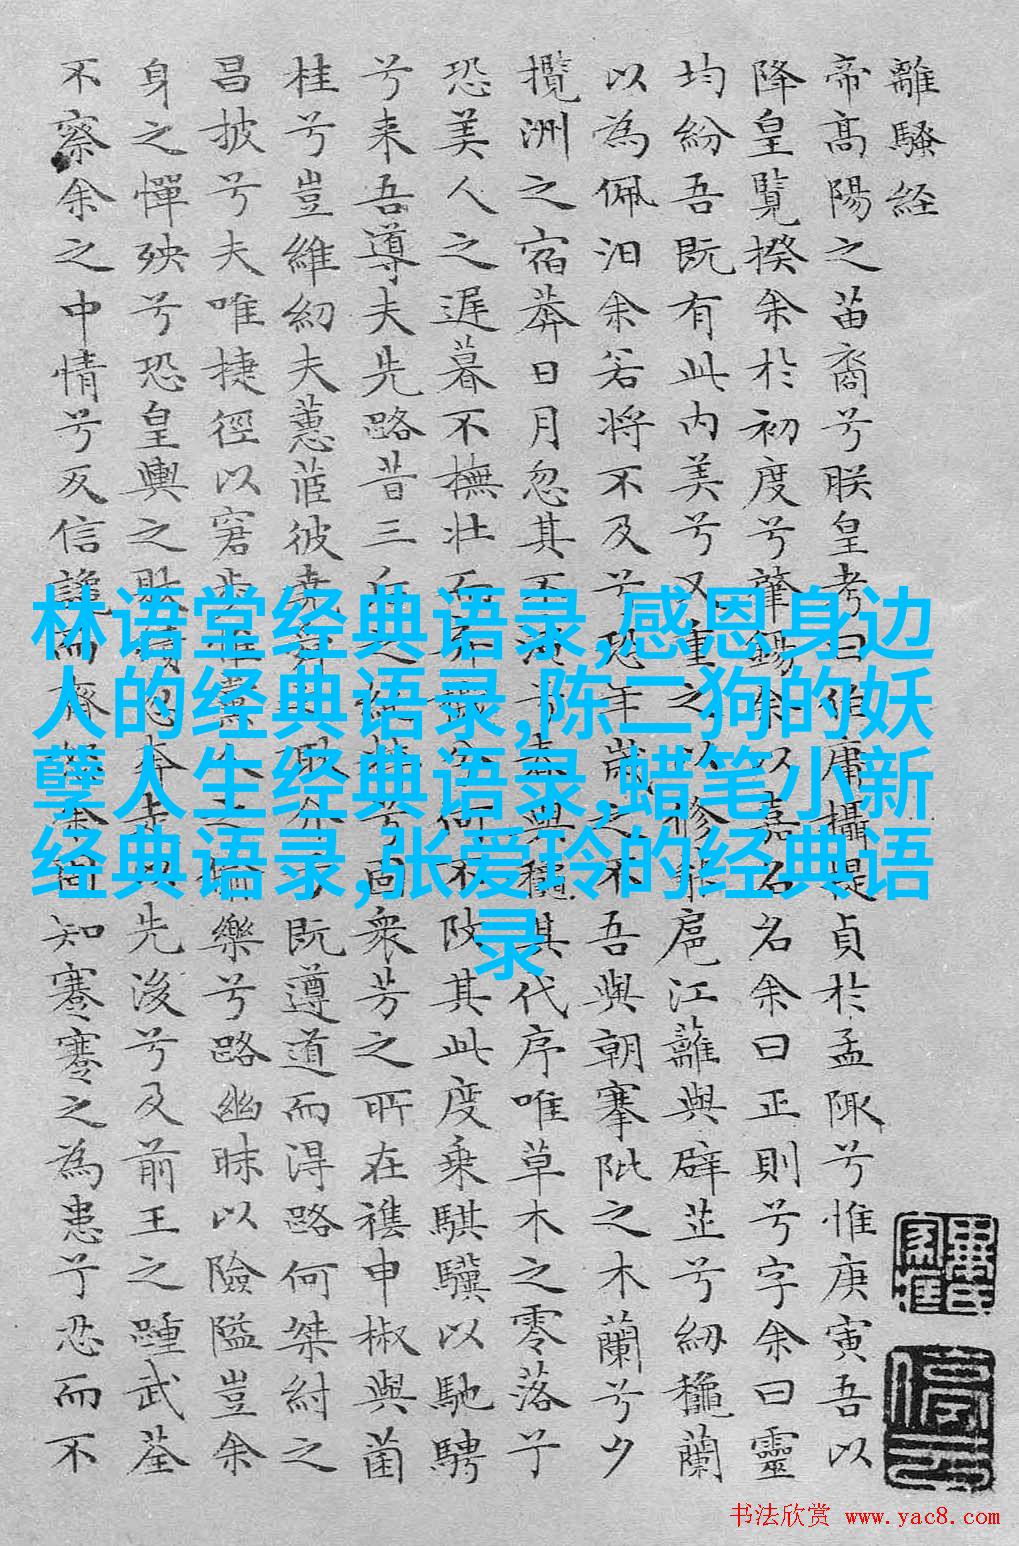 離騷経
帝高陽之苗裔兮朕皇考曰伯庸攝提貞於孟陬兮惟庚寅吾以
降皇覽揆余於初度兮肇錫余以嘉名名余曰正則兮字余曰靈
均紛吾既有此内美兮又重之以修能扈江蘺與辟芷兮紉穐蘭
以為佩汩余若將不及兮恐年歲之不吾與朝搴阰之木蘭兮夕
攬洲之宿莽日月忽其不淹兮春與穐其代序唯草木之零落兮
恐美人之遲暮不撫壯而棄穢兮何不改其此度乘騏驥以馳騁
兮来吾導夫先路昔三后之純兮固衆芳之所在雜申椒與菌
桂兮豈維紉夫蕙茝彼堯舜之耿介兮既遵道而得路何桀紂之
昌披兮夫唯捷徑以窘步惟黨人之偷樂兮路幽昧以險隘豈余
身之憚殃兮恐皇輿之敗績忽奔走與先後兮及前王之踵武荃
不察余之中情兮反信讒而齊怒余固知謇謇之為患兮忍而不
林语堂经典语录,感恩身边
人的经典语录,陈二狗的妖
孽人生经典语录,蜡笔小新
经典语录,张爱玲的经典语
录
书法欣赏 www.yac8.com